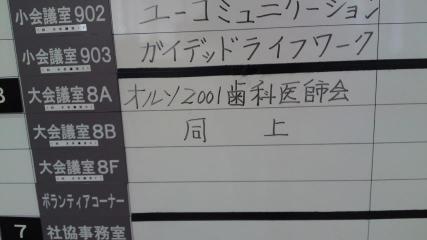 小会議室902 ユーコミュニケーション
小会議室903 ガイデッドライフワーク
大会議室8A オルソ2001歯科医師会
大会議室8B 同 上
大会議室8F
ボランティアコーナー
7 社協事務室